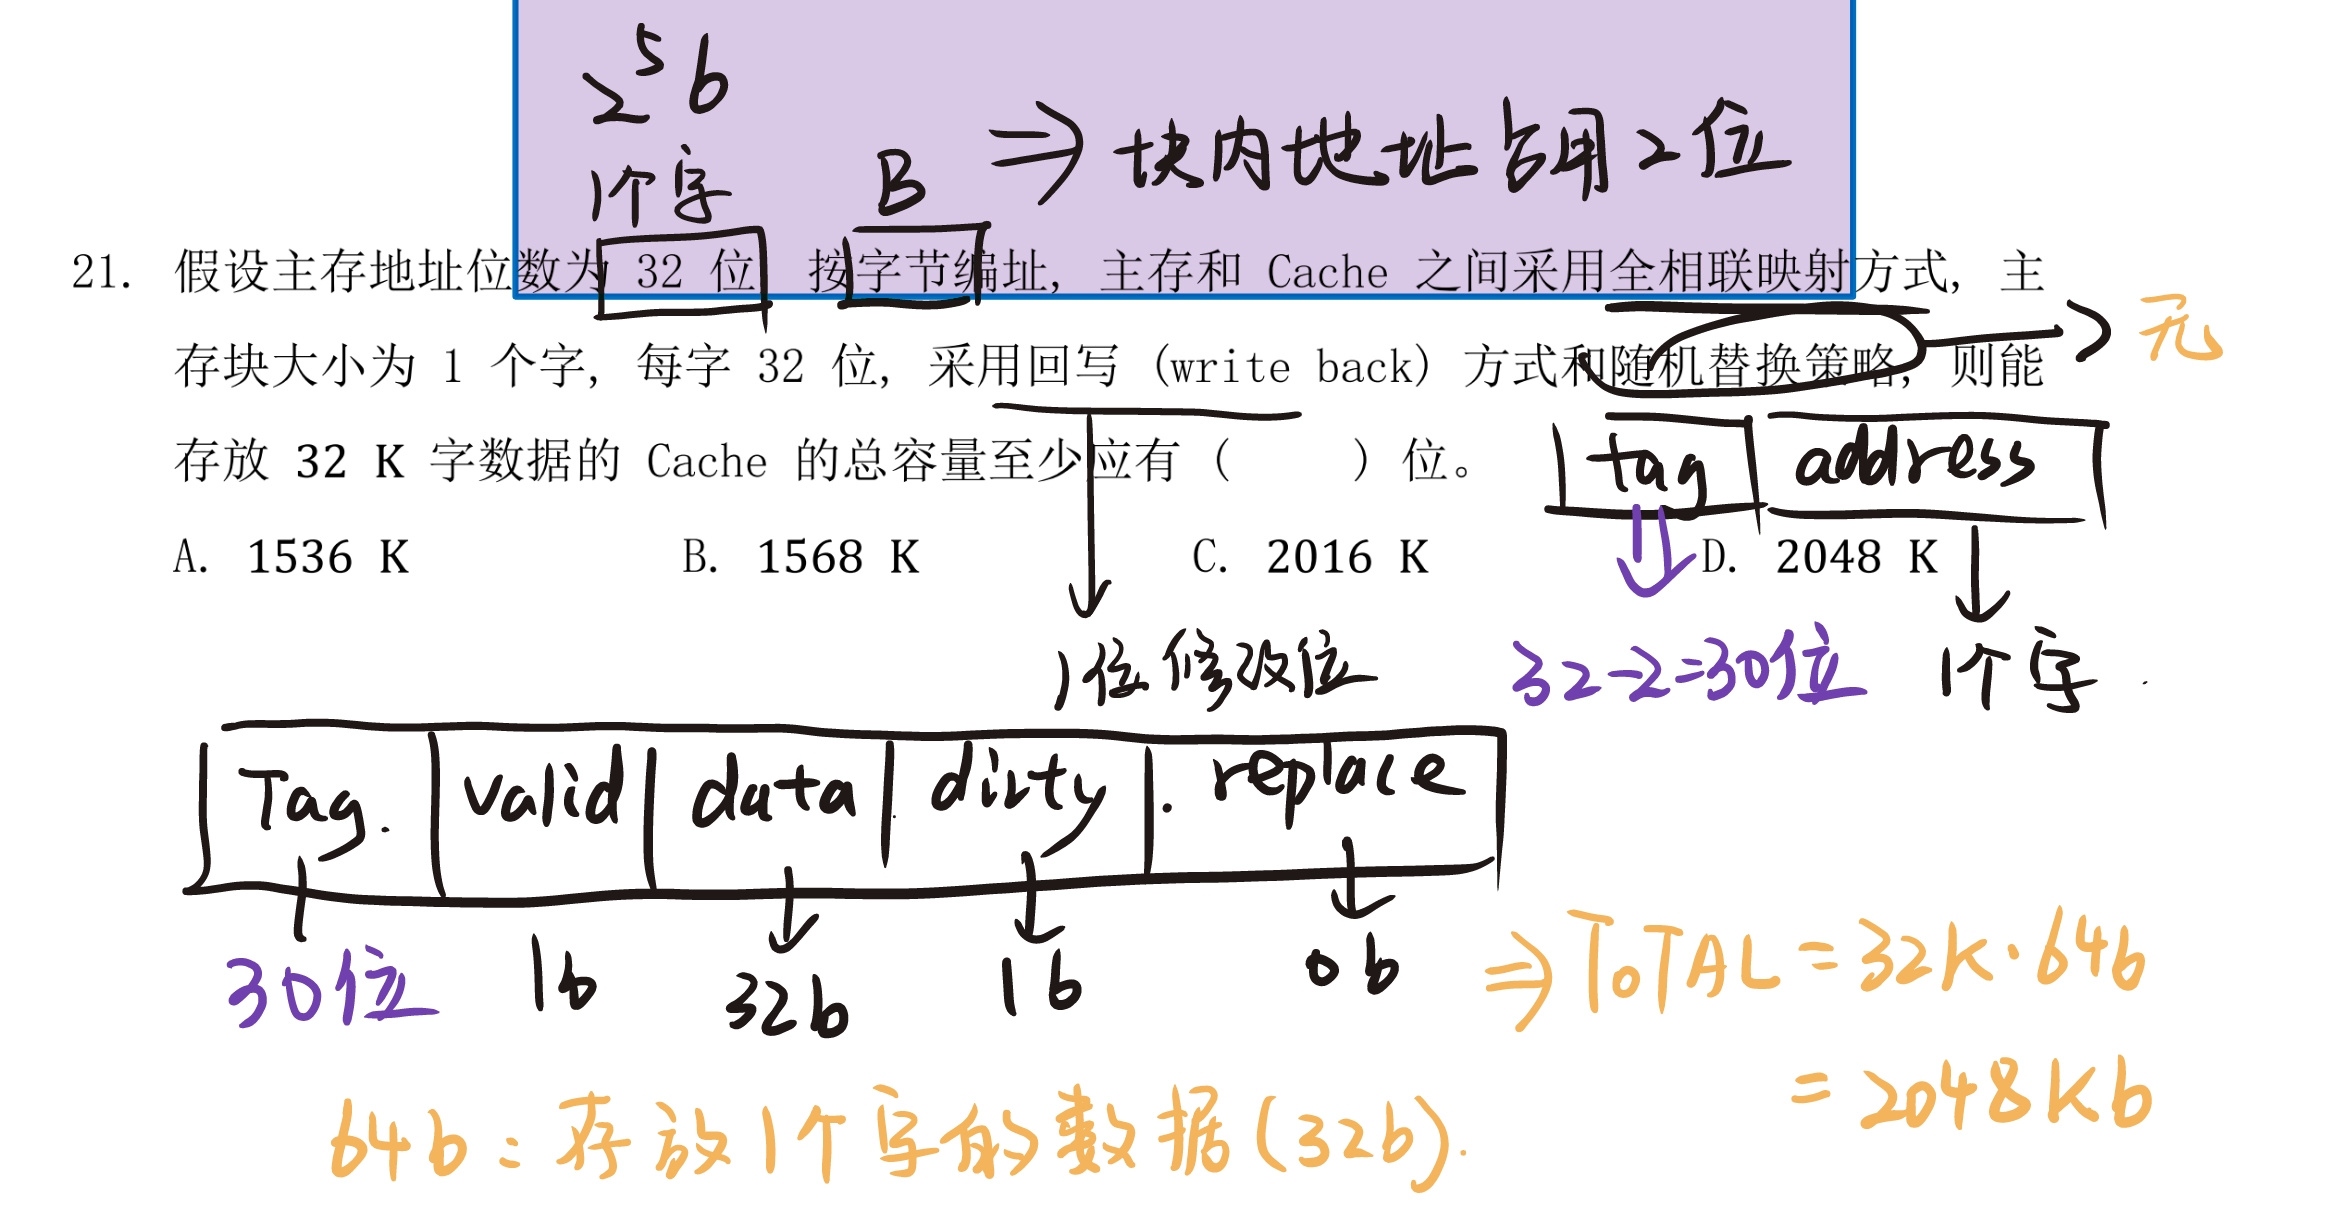 2⁵b
1个字
B ⇒ 块内地址占用2位
21. 假设主存地址位数为 32 位 按字节编址, 主存和 Cache 之间采用全相联映射方式, 主
存块大小为 1 个字, 每字 32 位, 采用回写 (write back) 方式和随机替换策略, 则能
→ 无
存放 32 K 字数据的 Cache 的总容量至少应有 ( ) 位。
tag address
A. 1536 K B. 1568 K C. 2016 K D. 2048 K
1位修改位 32-2=30位 1个字
Tag. valid data dirty replace
30位 1b 32b 1b 0b
⇒ TOTAL = 32K·64b
= 2048Kb
64b: 存放1个字的数据(32b).